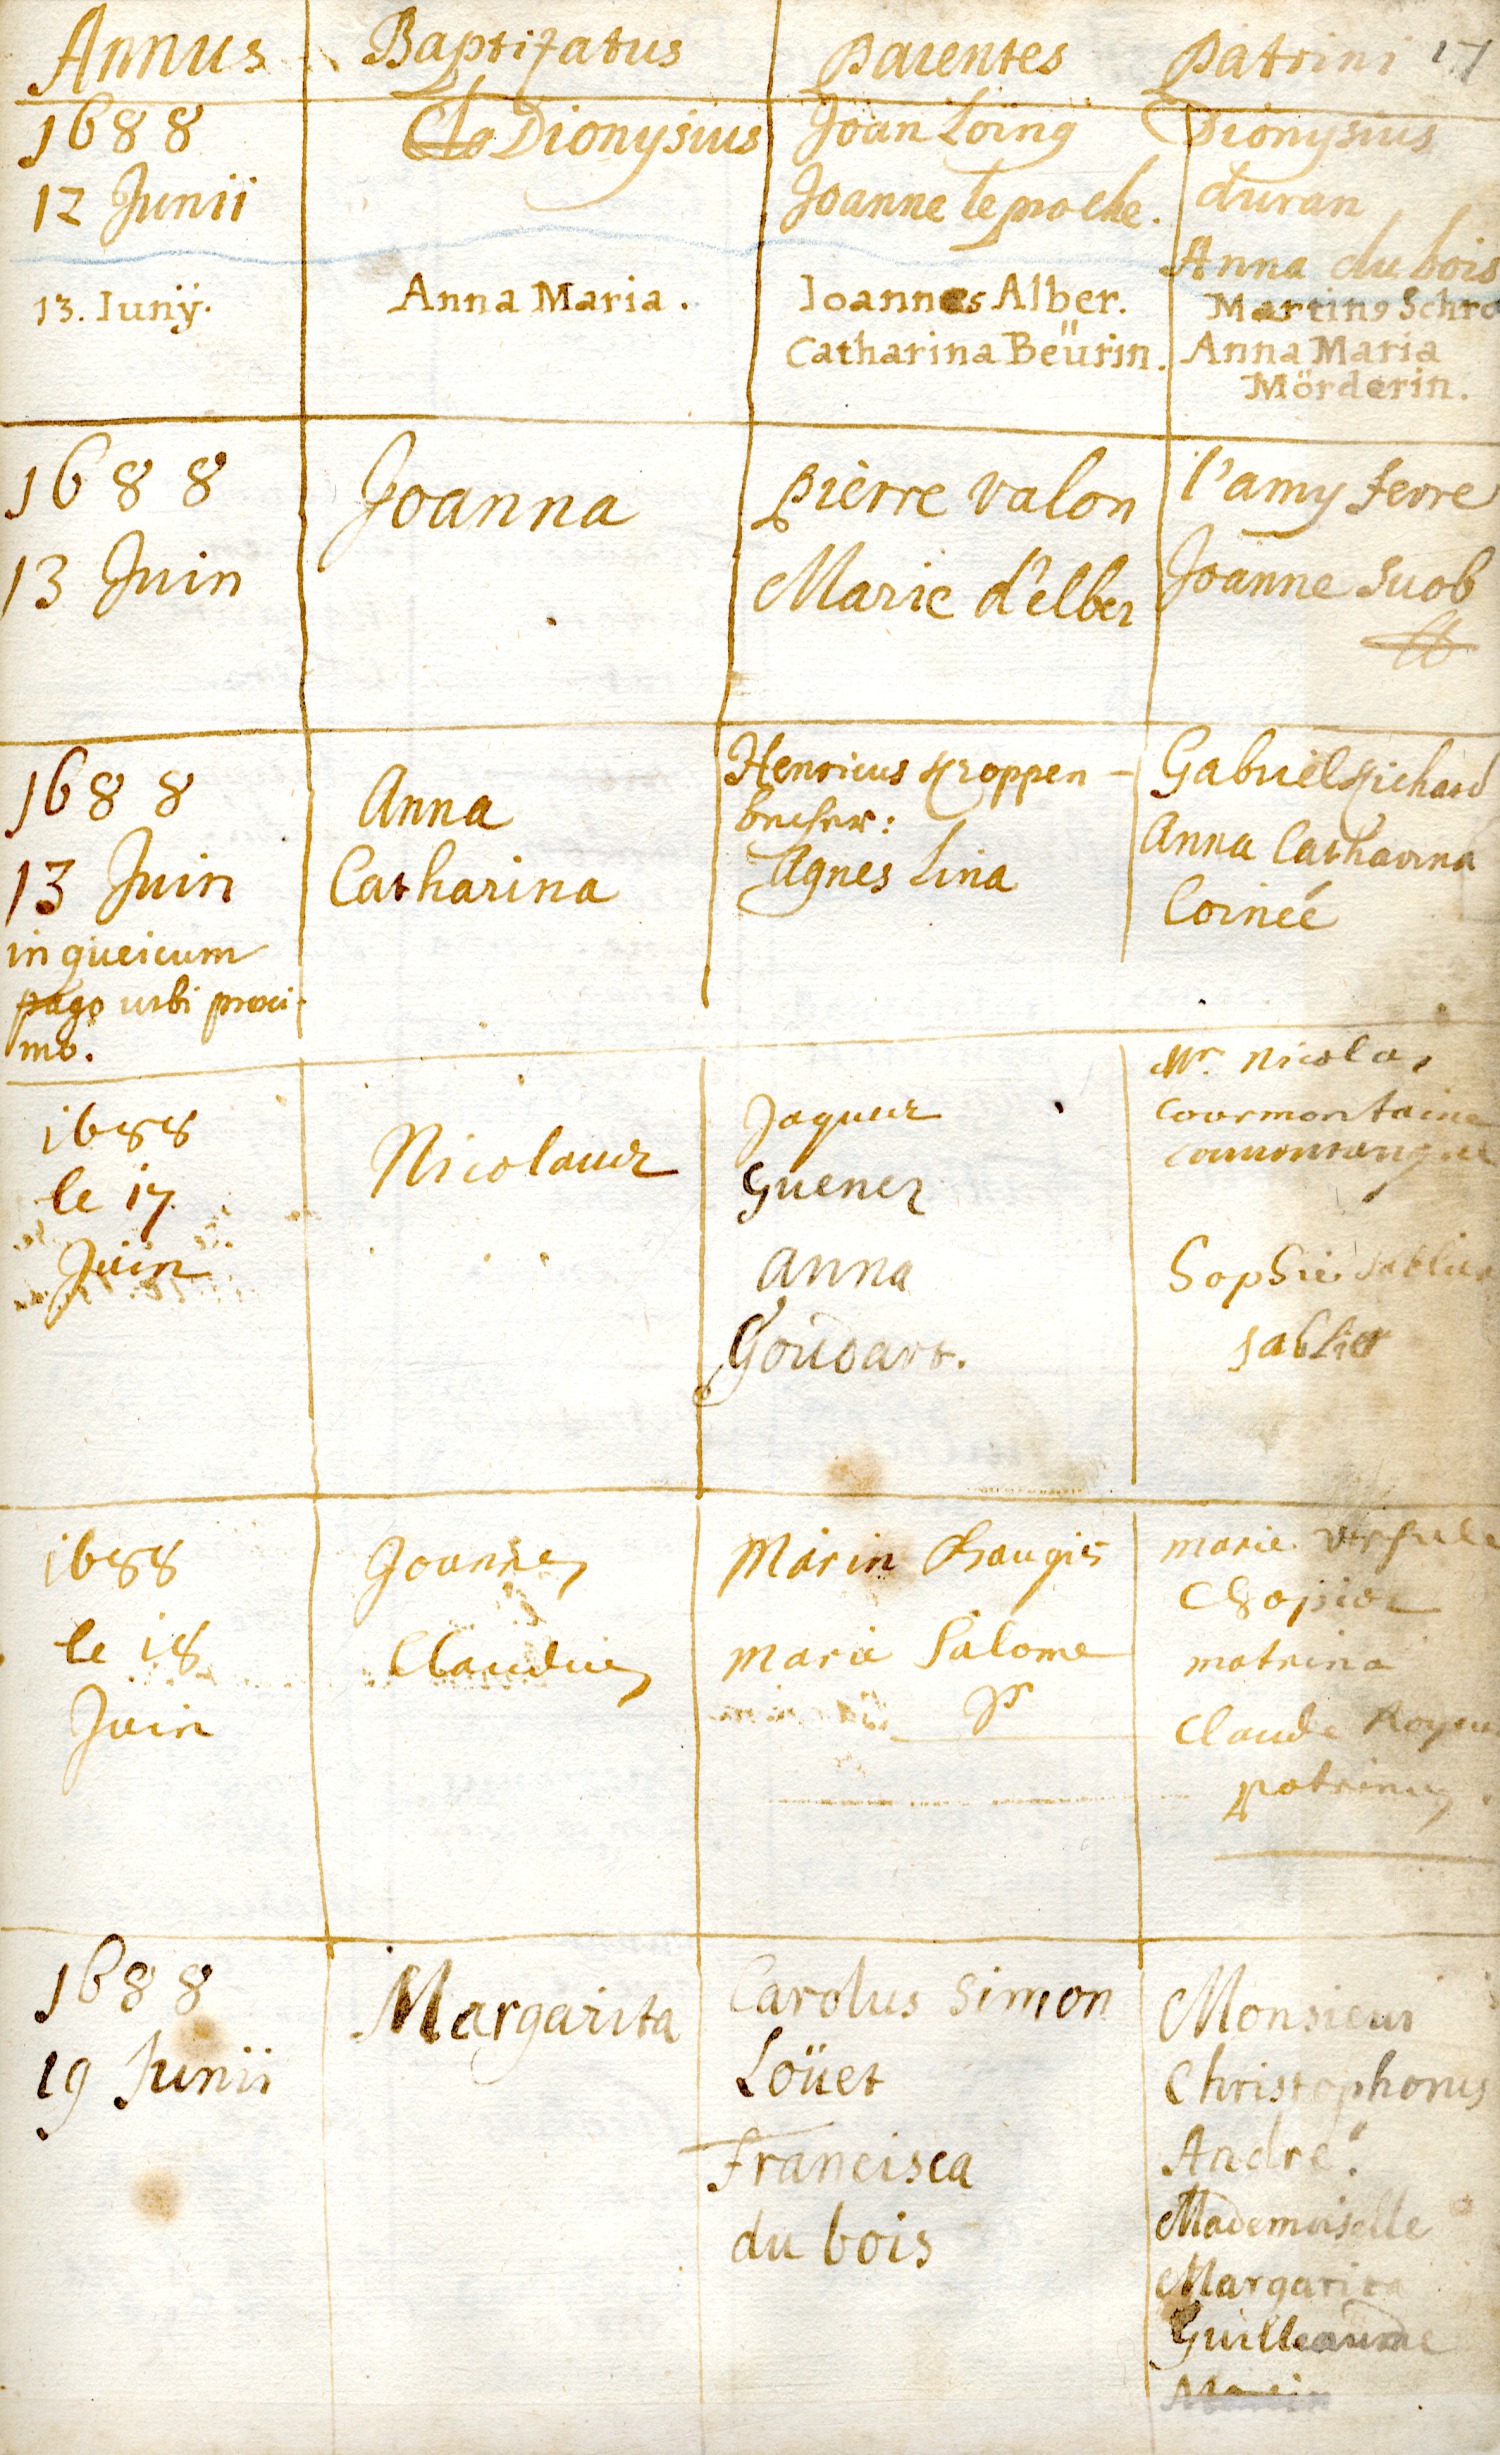 Annus Baptizatus Parentes Patrini 17
1688 Dionysius Joan Loing Dionysius
12 Junii Joanne le proche. duran
Anna du bois
13. Iunÿ. Anna Maria. Ioannes Alber. Martin9 Schro
Catharina Beürin. Anna Maria
Mörderin.
1688 Joanna pierre valon l'amy ferre
13 Juin Marie d'elber Joanne suob
1688 Anna Henricus Kroppen- Gabriel Richard
13 Juin Catharina becher: Anna Catharina
Agnes Lina Coineé
in gueicum
pago urbi proxi-
mo.
1688 Nicolaus Jaques Mr. Nicolas
le 17 Guenez courmontaine
Juin anna Sophie
Goudart. sablier
1688 Joannes Marin Chaugis marie Ursule
le 18 Claudius Marie Salome
Juin matrina
Claude
patrinus.
1688 Margarita Carolus Simon Monsieur
19 Junii Loüet Christophorus
Francisca André.
du bois Mademoiselle
Margarita
Guilleaume